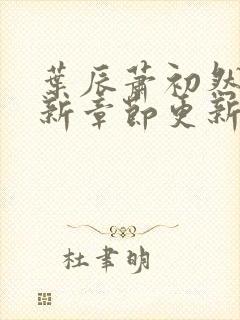 葉辰蕭初然
新章節更新
杜聿明